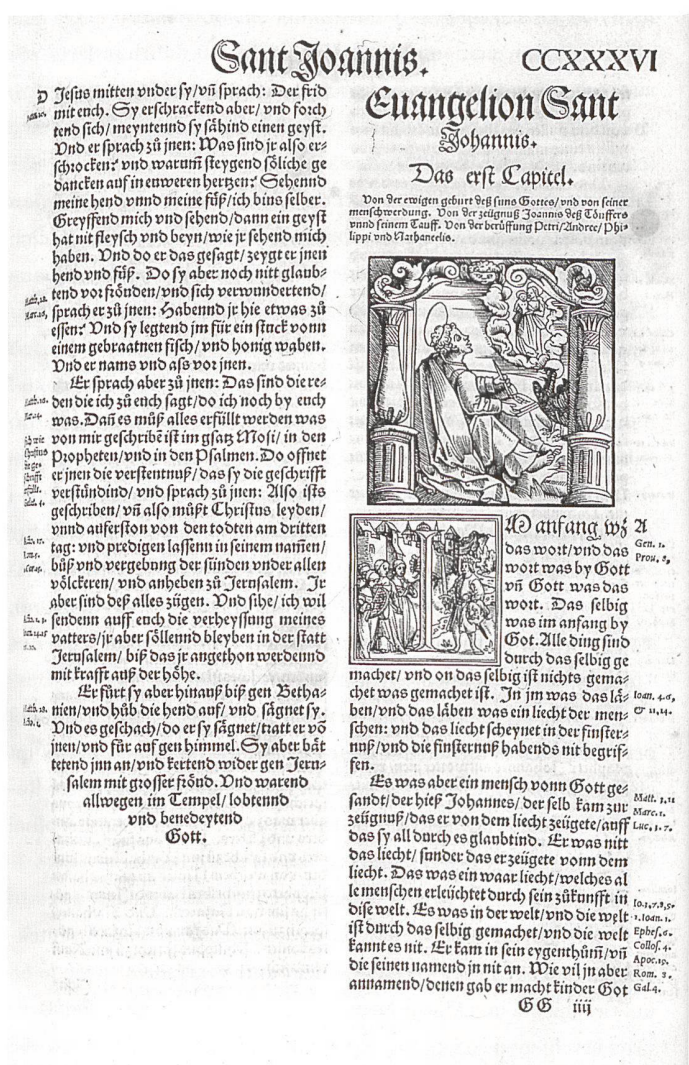 Sant Joannis. CCXXXVI
D Jesus mitten vnder sy/vñ sprach: Der frid
mit euch. Sy erschrackend aber/ vnd forch
tend sich/ meyntennd sy sähind einen geyst.
Vnd er sprach zů jnen: Was sind jr also er-
schrocken? vnd warum̃ steygend söliche ge
dancken auf in euweren hertzen? Sehennd
meine hend vnnd meine füß/ich bins selber.
Greyffend mich vnd sehend/dann ein geyst
hat nit fleysch vnd beyn/wie jr sehend mich
haben. Vnd do er das gesagt/ zeygt er jnen
hend vnd füß. Do sy aber noch nitt glaub-
tend vor fröuden/vnd sich verwundertend/
sprach er zů jnen: Habennd jr hie etwas zů
essen? Vnd sy legtend jm für ein stuck vonn
einem gebraatnen fisch/ vnd honig waben.
Vnd er nams vnd ass vor jnen.
Er sprach aber zů jnen: Das sind die re-
den die ich zů euch sagt/do ich noch by euch
was. Dañ es můß alles erfüllt werden was
von mir geschribẽ ist im gsatz Mosi/ in den
Propheten/vnd in den Psalmen. Do offnet
er jnen die verstentnuß/das sy die geschrifft
verstündind/ vnd sprach zů jnen: Also ists
geschriben/ vñ also můßt Christus leyden/
vnnd auferston von den todten am dritten
tag: vnd predigen lassenn in seinem nam̃en/
bůß vnd vergebung der sünden vnder allen
völckeren/ vnd anheben zů Jerusalem. Jr
aber sind deß alles zügen. Vnd sihe/ ich wil
sendenn auff euch die verheyssung meines
vatters/jr aber söllennd bleyben in der statt
Jerusalem/ biß das jr angethon werdennd
mit krafft auß der höhe.
Er fůrt sy aber hinauß biß gen Betha-
nien/vnd hůb die hend auf/ vnd sägnet sy.
Vnd es geschach/do er sy sägnet/tratt er võ
jnen/vnd fůr auf gen himmel. Sy aber bät
tetend jnn an/vnd kertend wider gen Jeru-
salem mit grosser fröud. Vnd warend
allwegen im Tempel/ lobtennd
vnd benedeytend
Gott.
Euangelion Sant
Johannis.
Das erst Capitel.
Von der ewigen geburt deß suns Gottes/ vnd von seiner
menschwerdung. Von der zeügnuß Joannis deß Töuffers
vnnd seinem Tauff. Von der berüffung Petri/Andree/ Phi-
lippi vnd Nathanaelis.
IM anfang wz A
das wort/vnd das Gen. 1.
wort was by Gott Prou. 8,
vñ Gott was das
wort. Das selbig
was im anfang by
Got. Alle ding sind
durch das selbig ge
machet/ vnd on das selbig ist nichts gema-
chet was gemachet ist. In jm was das lä- Ioan. 4.6,
ben/vnd das läben was ein liecht der men- & 11,14.
schen: vnd das liecht scheynet in der finster-
nuß/vnd die finsternuß habends nit begrif-
fen.
Es was aber ein mensch vonn Gott ge-
sandt/der hieß Johannes/der selb kam zur Matt. 3,11
zeügnuß/das er von dem liecht zeügete/auff Marc. 1.
das sy all durch es glaubtind. Er was nitt Luc, 1. 7.
das liecht/ sunder das er zeügete vonn dem
liecht. Das was ein waar liecht/welches al
le menschen erleüchtet durch sein zůkunfft in
dise welt. Es was in der welt/vnd die welt Io.1,7.8,9.
ist durch das selbig gemachet/vnd die welt 1.Ioan. 1.
kannt es nit. Er kam in sein eygenthům̃/vñ Ephes.6.
die seinen namend jn nit an. Wie vil jn aber Collos. 4.
annamend/denen gab er macht kinder Got Apoc.19.
Rom. 3.
Gal.4.
GG iiij